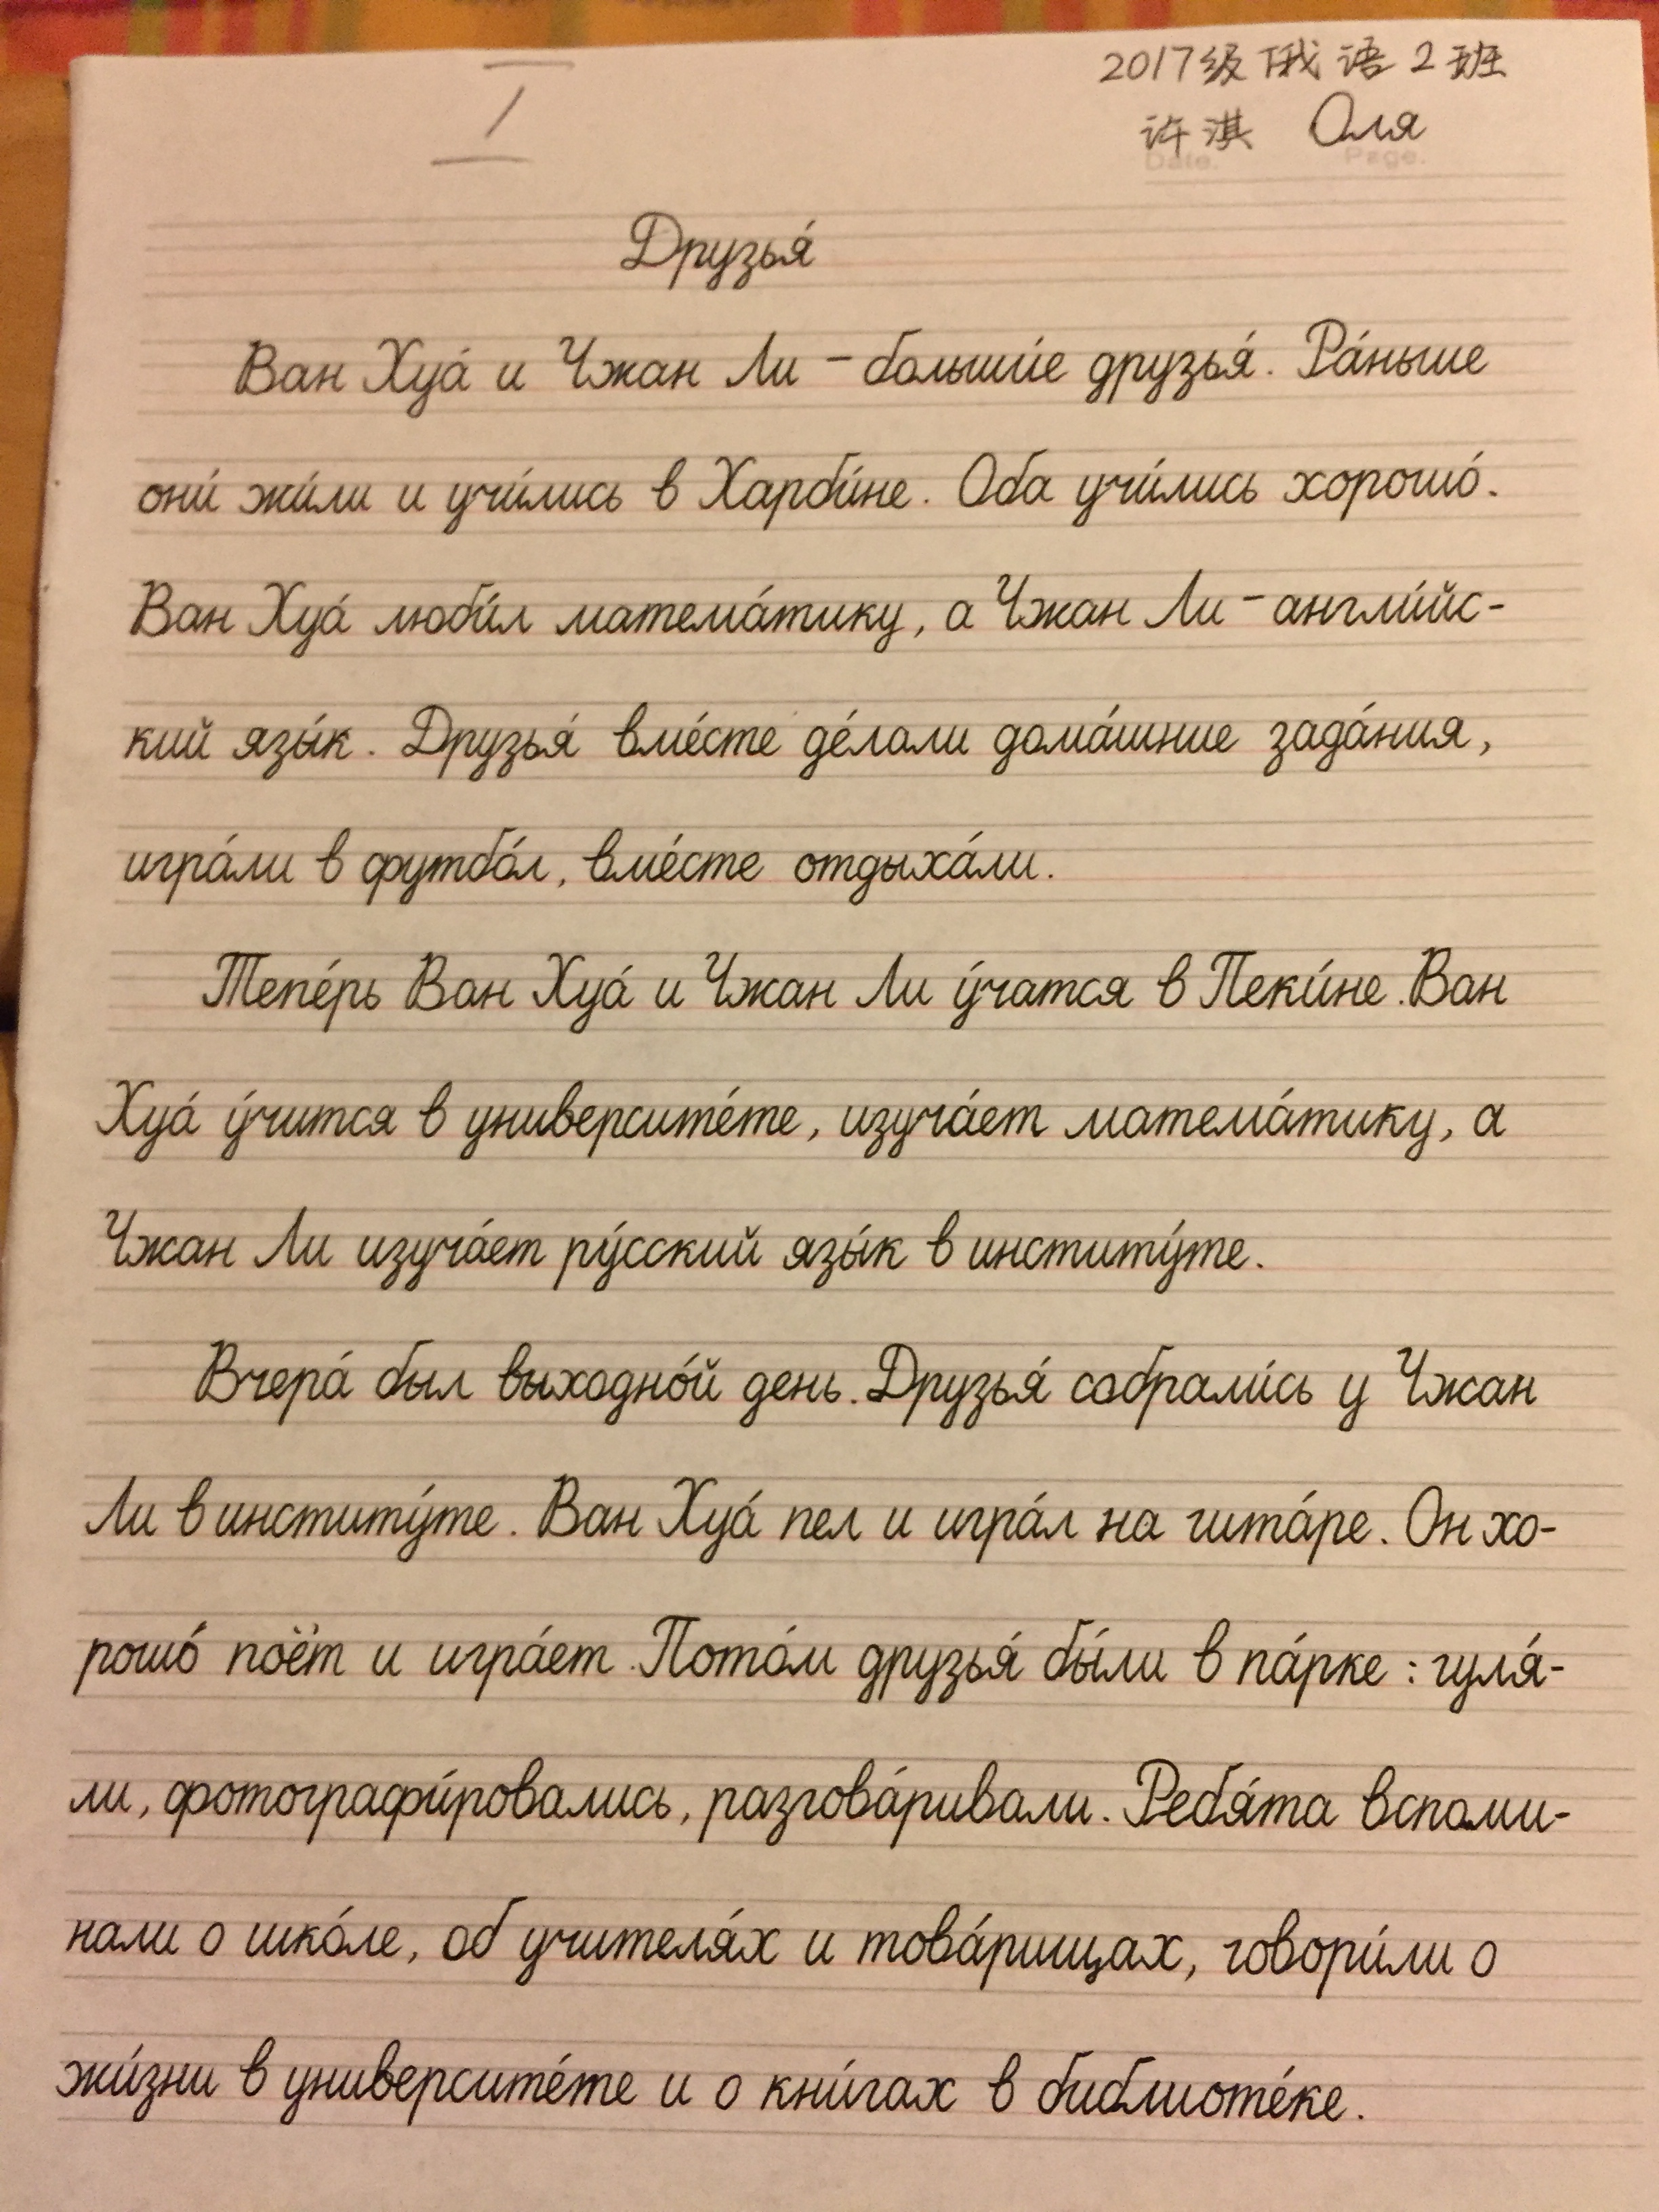 I
2017级俄语2班
许淇 Оля
Date. Page.
Друзья́
Ван Хуа́ и Чжан Ли – больши́е друзья́. Ра́ньше
они́ жи́ли и учи́лись в Харби́не. Оба учи́лись хорошо́.
Ван Хуа́ люби́л матема́тику, а Чжан Ли – англи́йс-
кий язы́к. Друзья́ вме́сте де́лали дома́шние зада́ния,
игра́ли в футбо́л, вме́сте отдыха́ли.
Тепе́рь Ван Хуа́ и Чжан Ли у́чатся в Пеки́не. Ван
Хуа́ у́чится в университе́те, изуча́ет матема́тику, а
Чжан Ли изуча́ет ру́сский язы́к в институ́те.
Вчера́ был выходно́й день. Друзья́ собрали́сь у Чжан
Ли в институ́те. Ван Хуа́ пел и игра́л на гита́ре. Он хо-
рошо́ поёт и игра́ет. Пото́м друзья́ бы́ли в па́рке: гуля́-
ли, фотографи́ровались, разгова́ривали. Ребя́та вспоми-
нали о шко́ле, об учителя́х и това́рищах, говори́ли о
жи́зни в университе́те и о кни́гах в библиоте́ке.